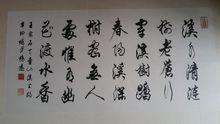 溪水清漣
樹老蒼行
穿溪樹踏
春陽溪深
樹密無人
處唯有幽
花渡水香
王安石天童山溪上